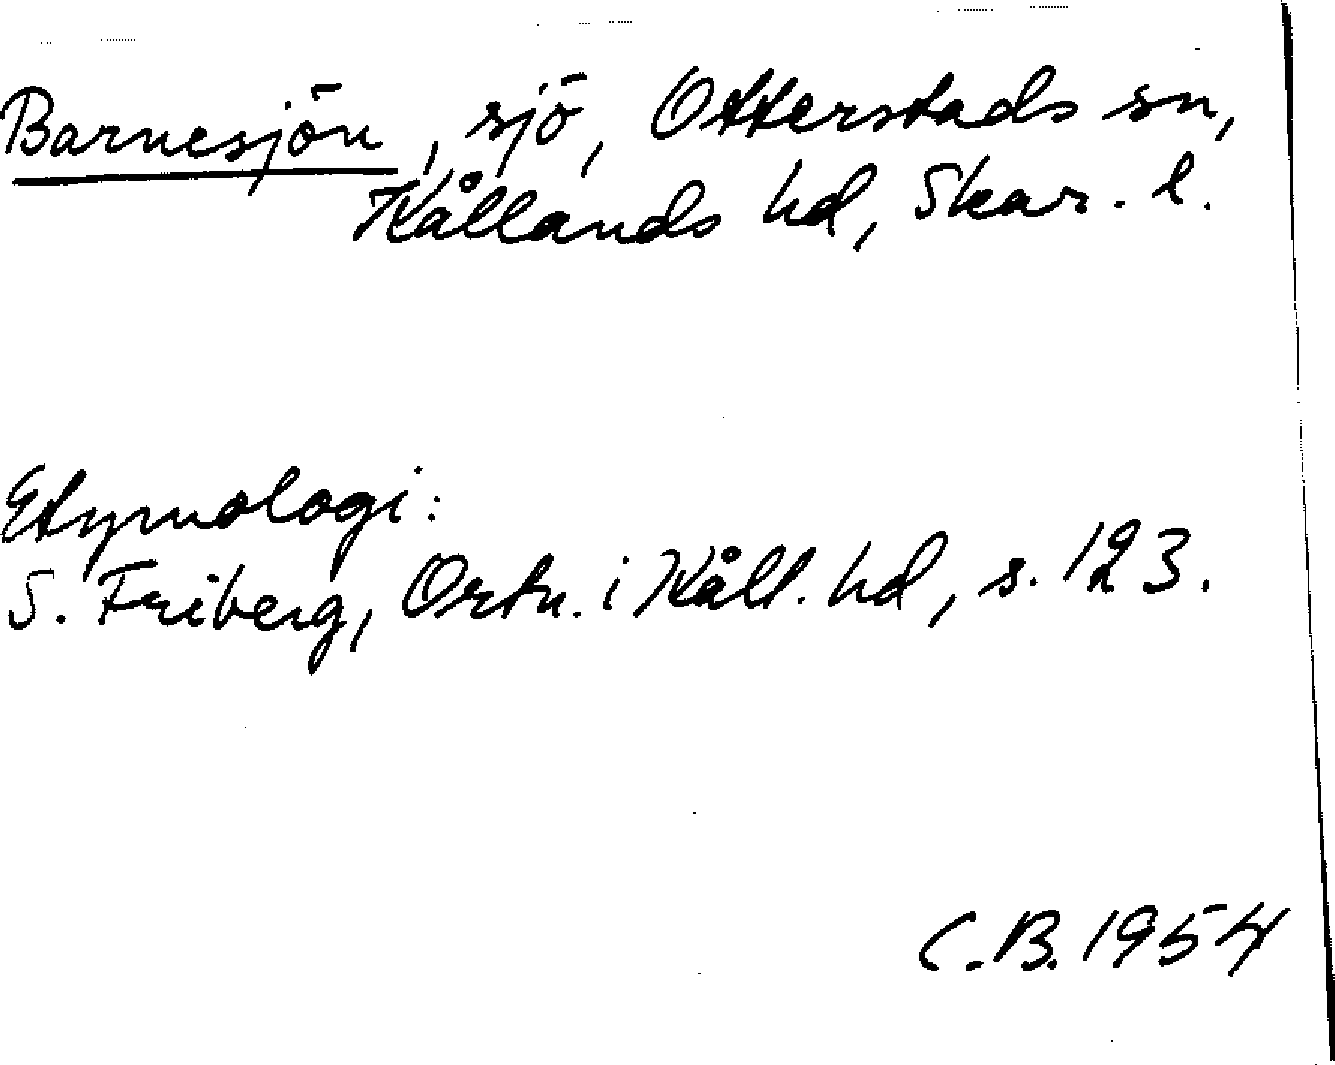 Barnesjön, sjö, Otterstads sn,
Kållands hd, Skar. l.
Etymologi:
S. Friberg, Ortn. i Kåll. hd, s. 123.
C.B. 1954